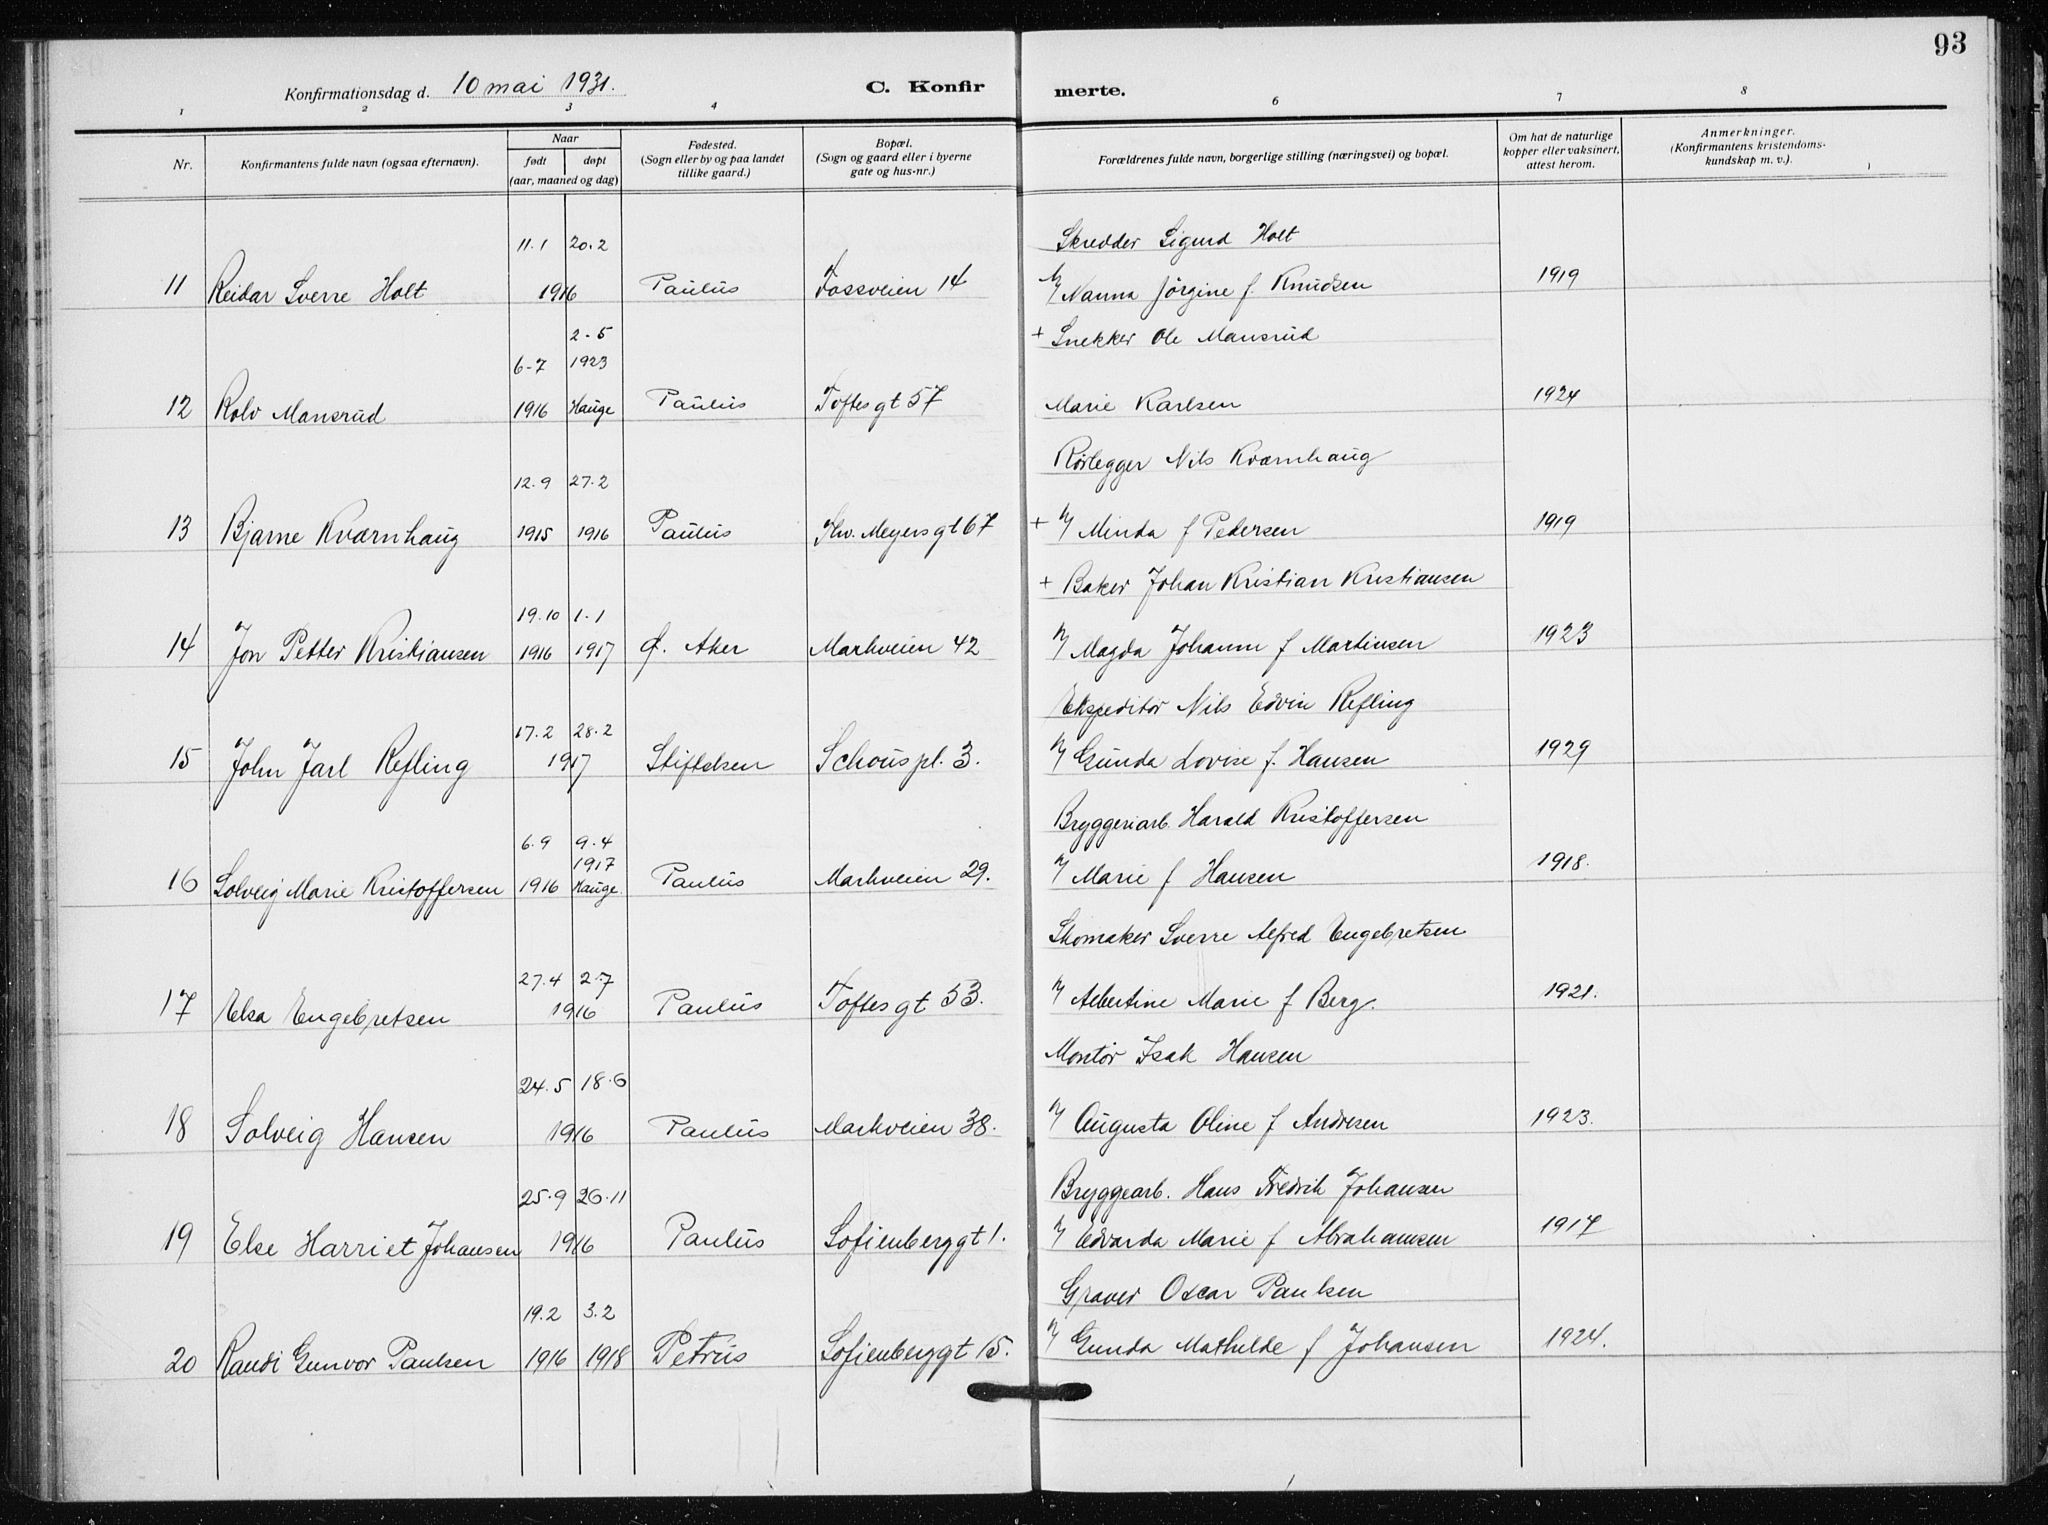 93
Konfirmationsdag d. 10 mai 1931. C. Konfirmerte.
1 2 3 4 6 7 8
Nr. Konfirmantens fulde navn (ogsaa efternavn). Naar født døpt (aar, maaned og dag) Fødested. (Sogn eller by og paa landet tillike gaard.) Bopæl. (Sogn og gaard eller i byerne gate og hus-nr.) Forældrenes fulde navn, borgerlige stilling (næringsvei) og bopæl. Om hat de naturlige kopper eller vaksinert, attest herom. Anmerkninger. (Konfirmantens kristendomskundskap m. v.).
11.1 20.2 Skredder Sigurd Holt
11 Reidar Sverre Holt 1916 Paulus Fossveien 14 n/ Nanna Jörgine f. Knudsen 1919
2-5 + Snekker Ole Mansrud
6-7 1923
12 Rolv Mansrud 1916 Hauge Paulus Toftesgt 57 Marie Karlsen 1924
Rörlegger Nils Kværnhaug
12.9 27.2
13 Bjarne Kværnhaug 1915 1916 Paulus Thv. Meyers gt 67 + n/ Minda f Pedersen 1919
+ Baker Johan Kristian Kristiansen
19.10 1.1
14 Jon Petter Kristiansen 1916 1917 Ø. Aker Markveien 42 n/ Magda Johanne f Martinsen 1923
Ekspeditör Nils Edvin Refling
17.2 28.2
15 John Jarl Refling 1917 Stiftelsen Schous pl. 3. n/ Gunda Lovise f. Hansen 1929
Bryggeriarb. Harald Kristoffersen
6.9 9.4
1917
16 Solveig Marie Kristoffersen 1916 Hauge. Paulus Markveien 29. n/ Marie f Hansen 1918.
Skomaker Sverre Alfred Engebretsen
27.4 2.7
17 Elsa Engebretsen 1916 Paulus Toftesgt 53. n/ Albertine Marie f Berg. 1921.
Montör Isak Hansen
24.5 18.6
18 Solveig Hansen 1916 Paulus Markveien 38. n/ Augusta Oline f Andresen 1923.
25.9 26.11 Bryggearb. Hans Fredrik Johansen
19 Else Harriet Johansen 1916 Paulus Sofienberggt 1. n/ Edvarda Marie f Abrahamsen 1917
Gravør Oscar Paulsen
19.2 3.2
20 Randi Gunvor Paulsen 1916 1918 Petrus Sofienberggt 15. n/ Gunda Mathilde f Johansen 1924.